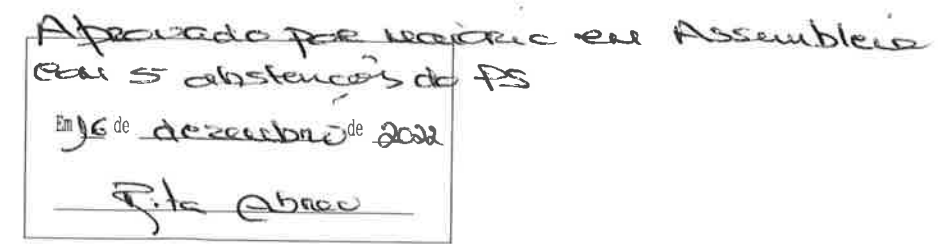 Aprovado por maioria em Assembleia
com 5 abstenções do PS
Em 16 de dezembro de 2022
Rita Abreu